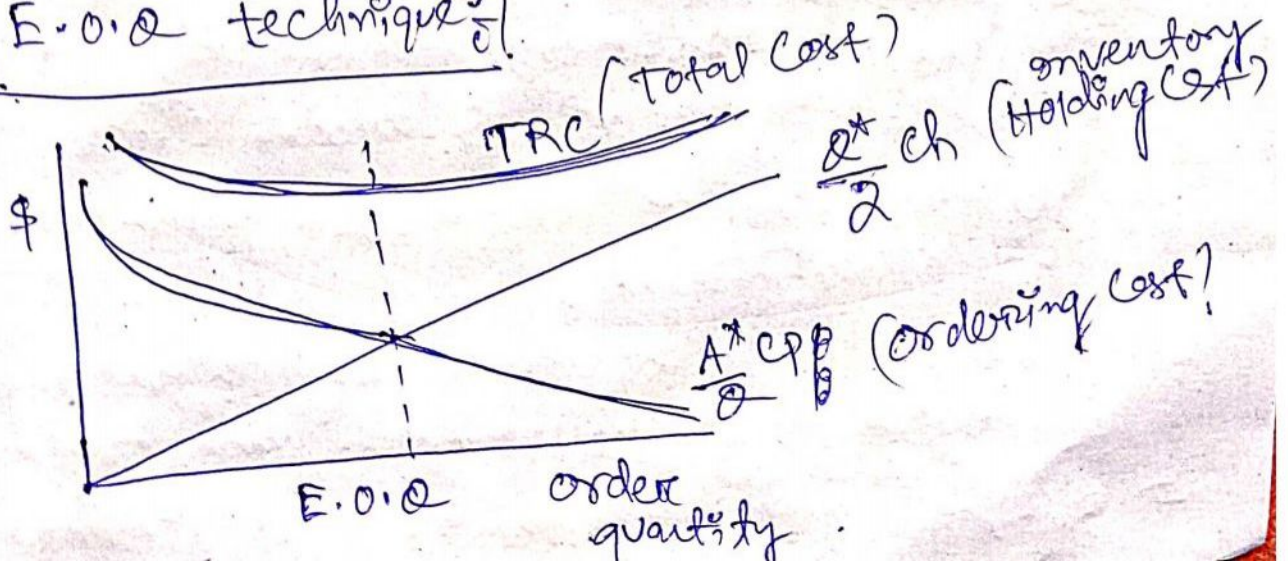 E.O.Q technique:-
(Total Cost)
TRC
Inventory
Q*/2 Ch (Holding Cost)
$
A*/Q CP (Ordering Cost)
E.O.Q
order
quantity